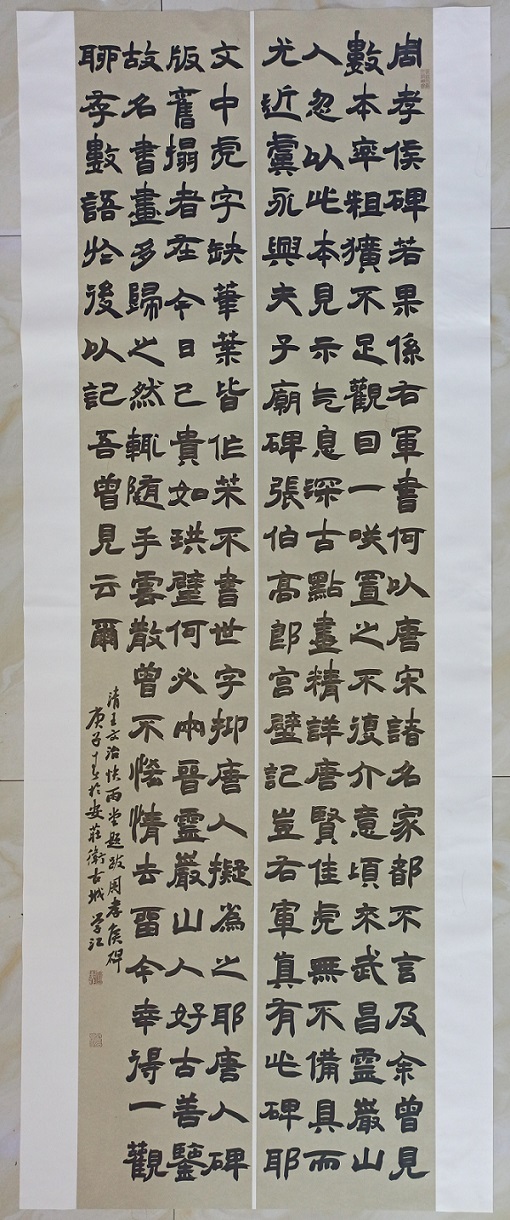 周孝侯碑若果係右軍書何以唐宋諸名家都不言及余曾見
數本率粗獷不足觀目一咲置之不復介意頃來武昌靈巖山
人忽以此本見示气息深古點畫精詳唐賢佳處無不備具而
尤近虞永興夫子廟碑張伯高郎官壁記豈右軍真有此碑耶
文中虎字缺華葉皆作茱不書世字抑唐人擬為之耶唐人碑
版舊搨者在今日已貴如珙璧何必兩晉靈巖山人好古善鑒
故名書畫多歸之然輒隨手雲散曾不慳情去留今幸得一觀
聊孝數語於後以記吾曾見云爾
清王文治快雨堂題跋周孝侯碑
庚子十月於安莊衛古城學江